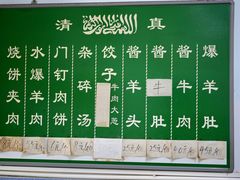 清 真
烧饼夹肉
水爆羊肉
门钉肉饼
杂碎汤
饺子
牛肉大葱
酱羊头
酱牛肚
酱牛肉
爆羊肚